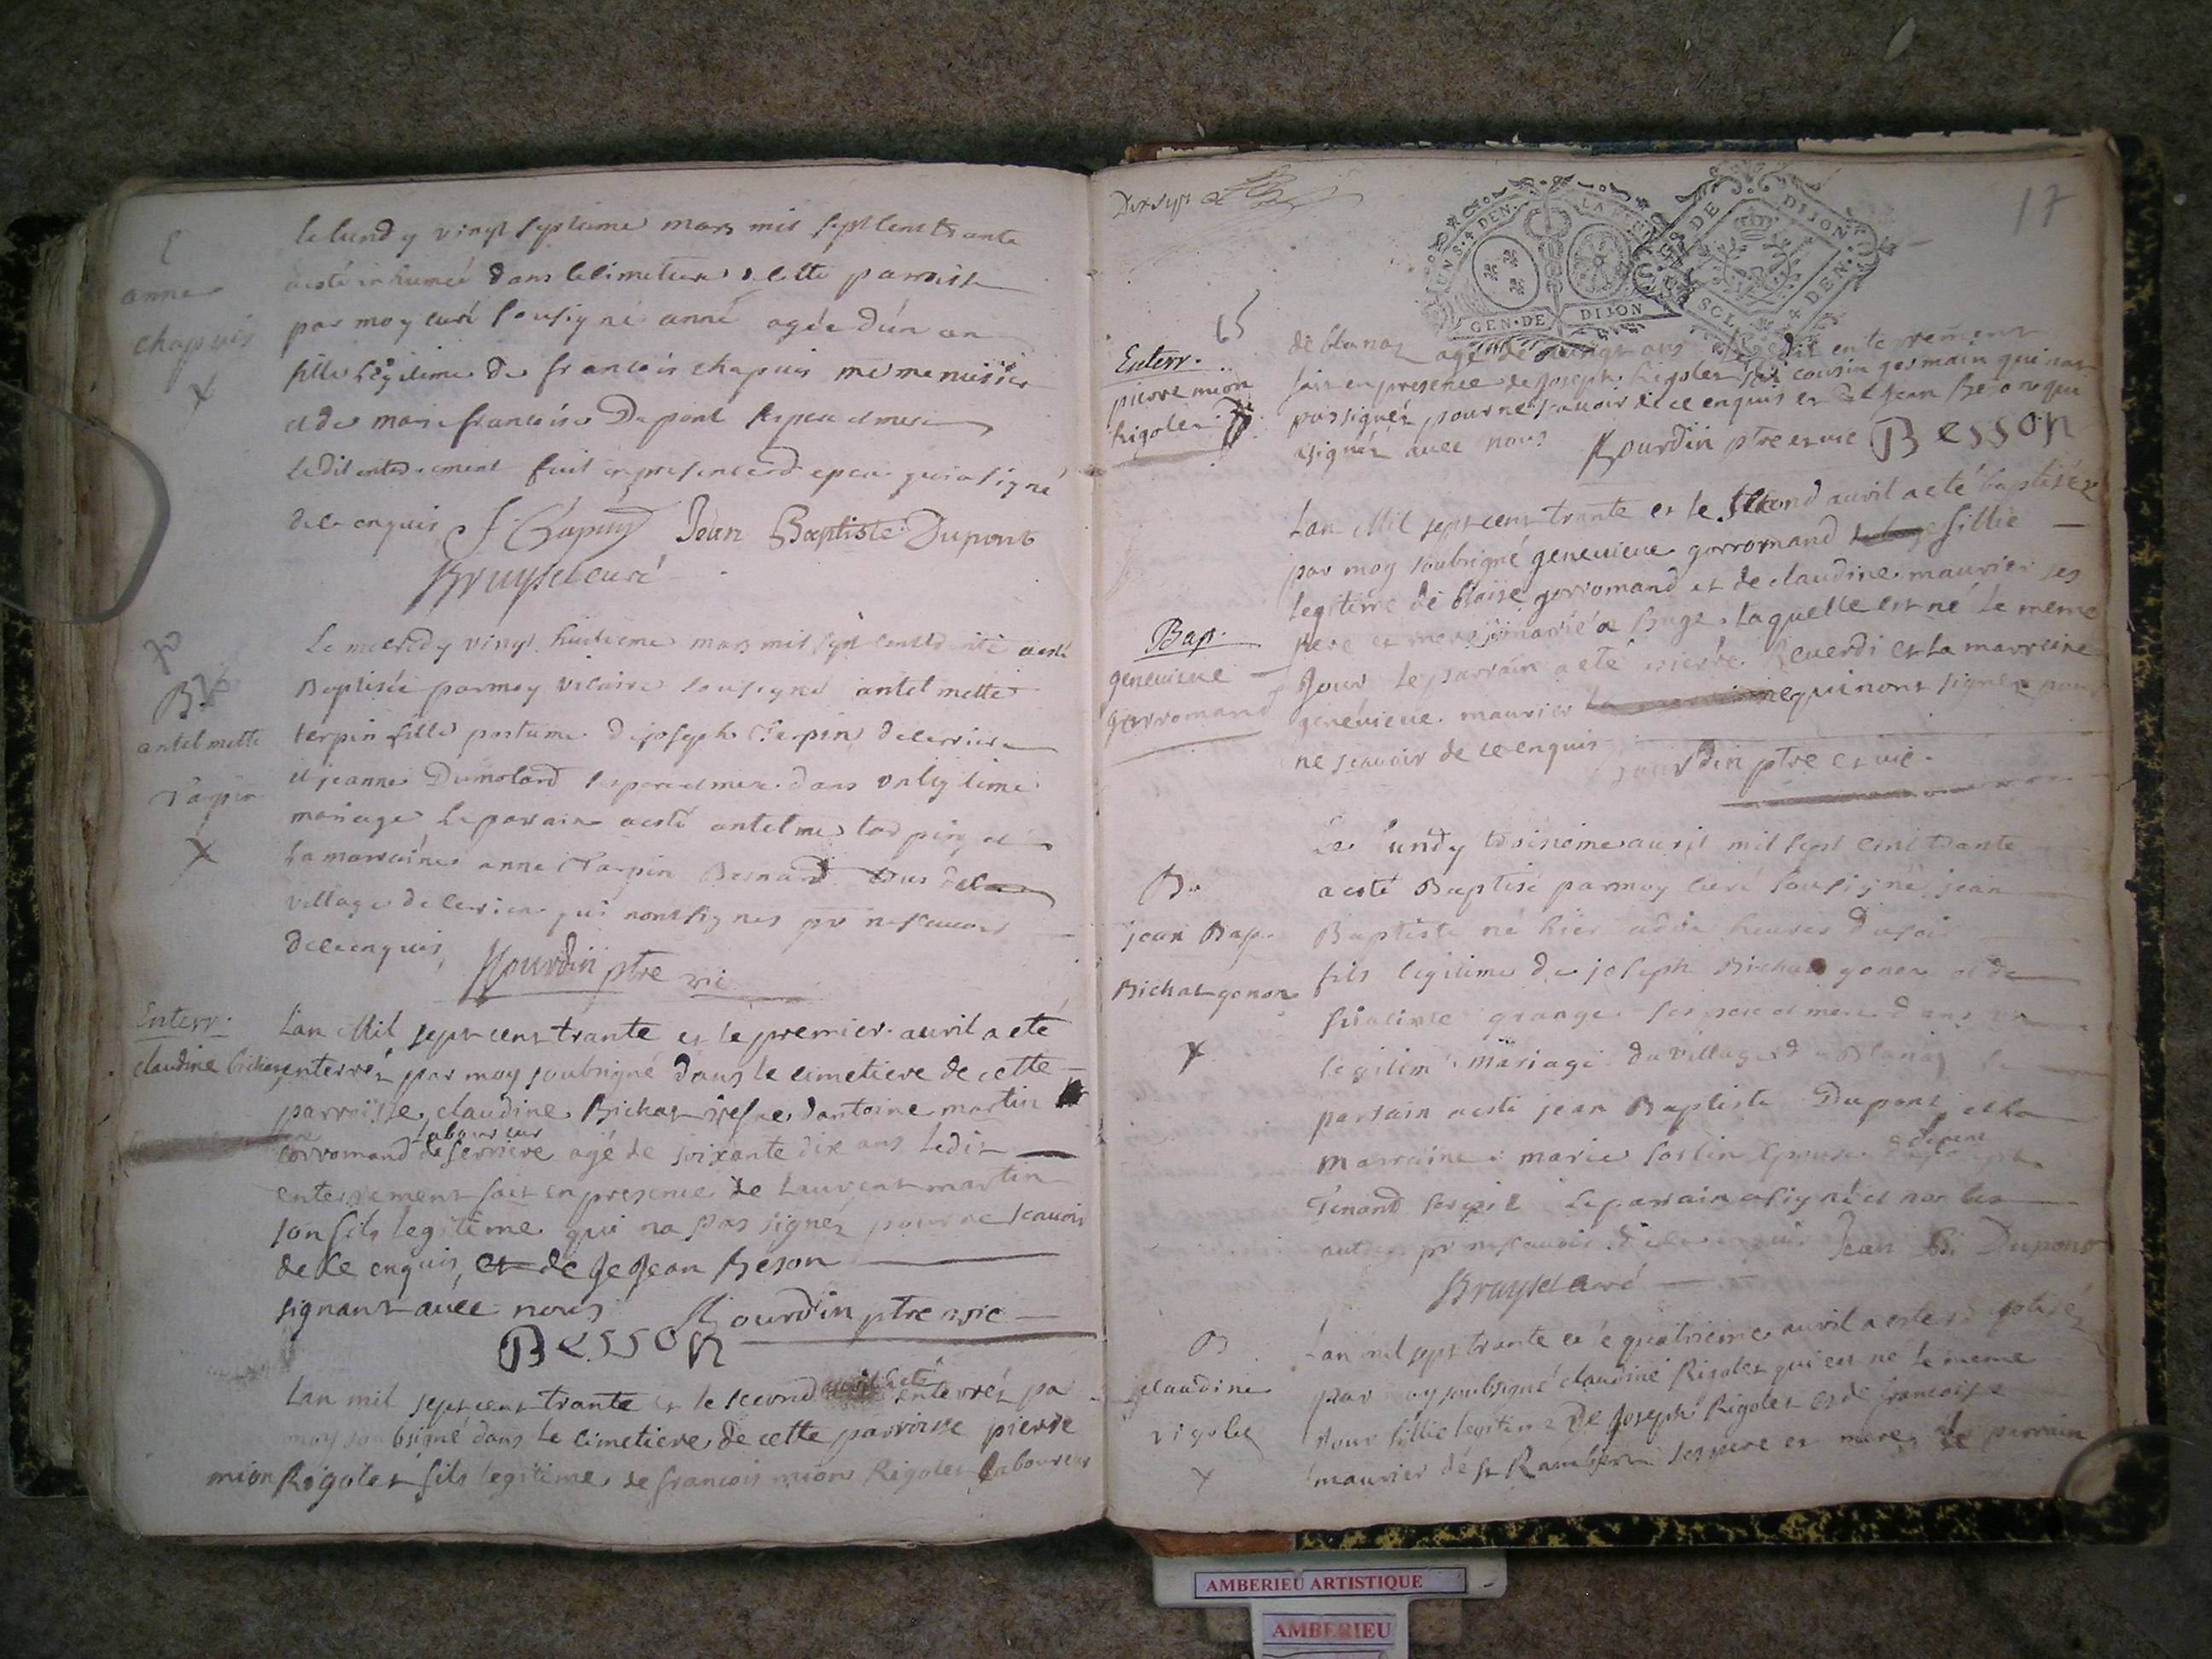 E
anne
chapuis
le lundy vingt septieme mars mil sept cent trante
a esté inhumée dans le cimetiere de cette paroisse
par moy curé sousigné anne agée d'un an
fille légitime de francois chapuis me menuisier
et de marie francoise Dupont ses pere et mere
ledit enterrement fait en presence de pere qui a signé
de ce enquis J Chapuy Jean Baptiste Dupont
Bruyset curé
B
antelmette
Tarpin
Le mecredy vingt huitieme mars mil sept cent trante a esté
Baptisée par moy vicaire sousigné antelmette
terpin fille postume de joseph Terpin de
et jeanne Dumolard ses pere et mere dans un legitime
mariage Le parain a esté antelme tarpin et
La marraine anne Tarpin Besnard tous
village de qui nont signés pr ne scavoir
de ce enquis Jourdin ptre vic
Enterr.
claudine bichat
Lan Mil sept cent trante et le premier auril a eté
enterréz par moy soubsigné dans le cimetiere de cette
parroisse claudine Bichat d'antoine martin
corromand laboureur de serriere agé de soixante dix ans ledit
enterrement fait en presence de Laurent martin
son fils legitime qui na pas signéz pour ne scavoir
de ce enquis, et de Je Jean Beson
signant auec nous Jourdin ptre vic
BESSON
Lan mil sept cent trante et le second auril a eté enterréz par
moy soubsigné dans le cimetiere de cette parroisse pierre
mion Rigolet fils legitime de francois mion Rigolet laboureur
Dixsept
17
15
UN S. 4 DEN. LA
GEN. DE DIJON
DE DIJON
SOL 4 DEN.
Enterr.
pierre mion
Rigolet
de blanaz agé de vingt ans Ledit enterrement
fait en presence de Joseph Rigolet son cousin germain qui na
pas signéz pour ne scavoir de ce enquis et de Jean Beson qui
a signéz auec nous Jourdin ptre et vic BESSON
Bap.
geneuieue
gorromand
Lan Mil sept cent trante et le second auril a eté baptiséz
par moy soubsigné geneuieue gorromand fillie
legitime de blaise gorromand et de claudine maurier ses
pere et mere Laquelle est né le meme
Jour Le parrain a eté pierre Reuerdi et la marreine
geneuieue maurier qui nont signéz pour
ne scauoir de ce enquis Jourdin ptre et vic.
B.
jean Bap.
Bichat gonon
Le lundy troisieme auril mil sept cent trante
a esté Baptisé par moy curé sousigné jean
Baptiste né hier a dix heures du soir
fils legitime de joseph Bichat gonon et de
grange ses pere et mere dans un
legitime mariage du village de Blanaz le
parrain a esté jean Baptiste Dupont et la
marraine marie epouse
Tenand Le parrain a signé et non les
autres pr ne scavoir de ce enquis Jean Ba Dupont
Bruyset curé
B
claudine
rigolet
Lan mil sept trante et le quatrieme auril a esté baptiséz
par moy soubsigné claudine Rigolet qui est né le meme
Jour fillie legitime de Joseph Rigolet et de francoise
maurier de st Rambert ses pere et mere le parrain
AMBERIEU ARTISTIQUE
AMBERIEU